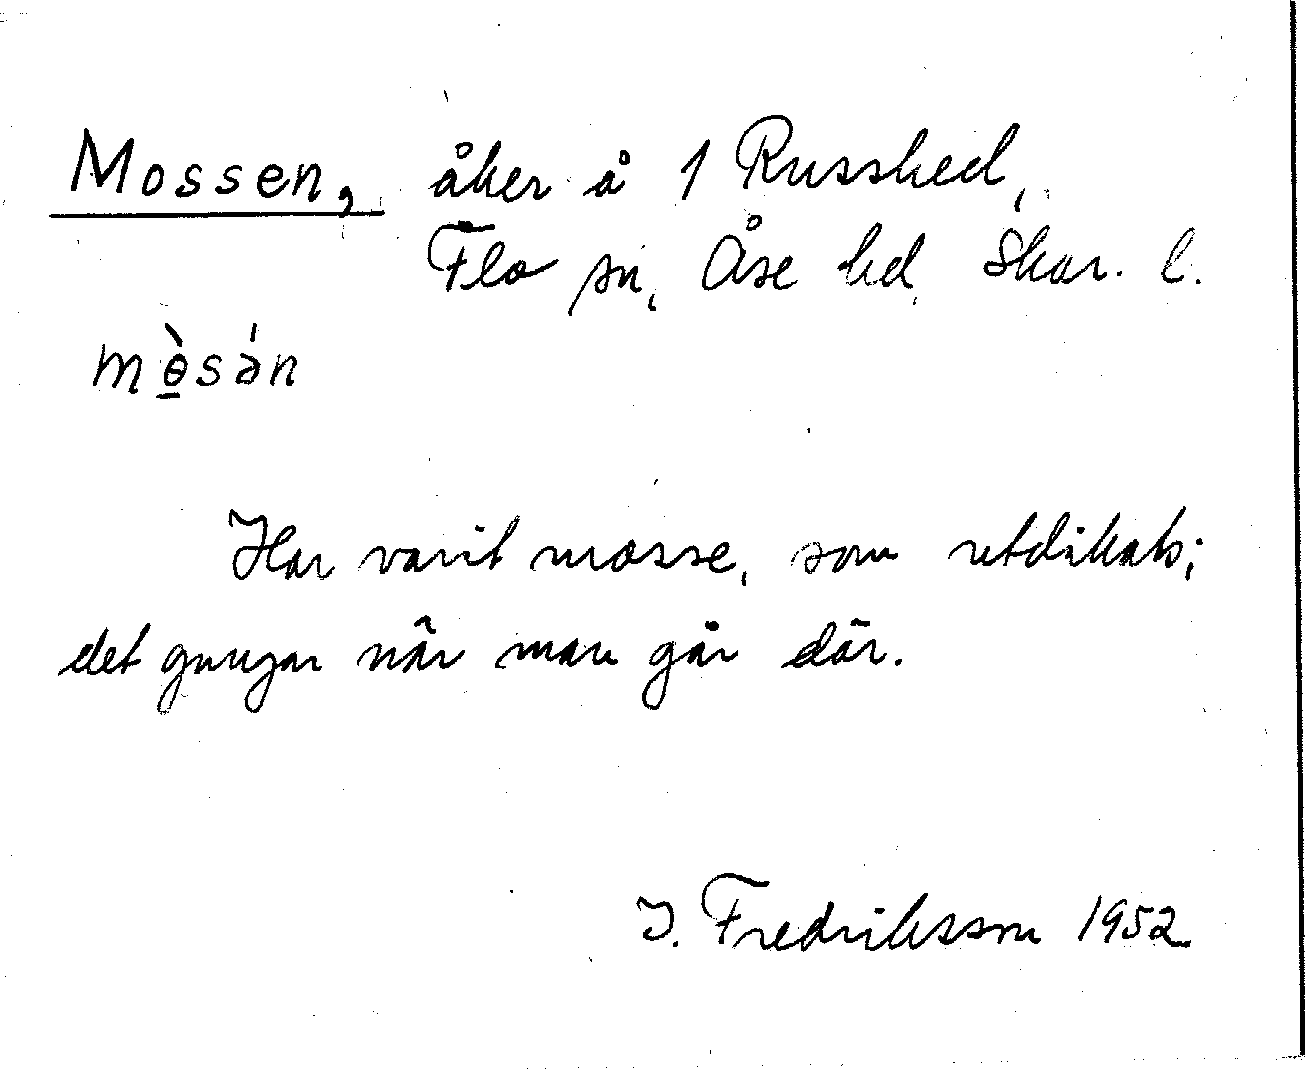 Mossen, åker å 1 Russhed,
Flo sn, Åse hd, Skar. l.
mɵ̠̀sə́n
Har varit mosse, som utdikats;
det gungar när man går där.
I. Fredriksson 1952